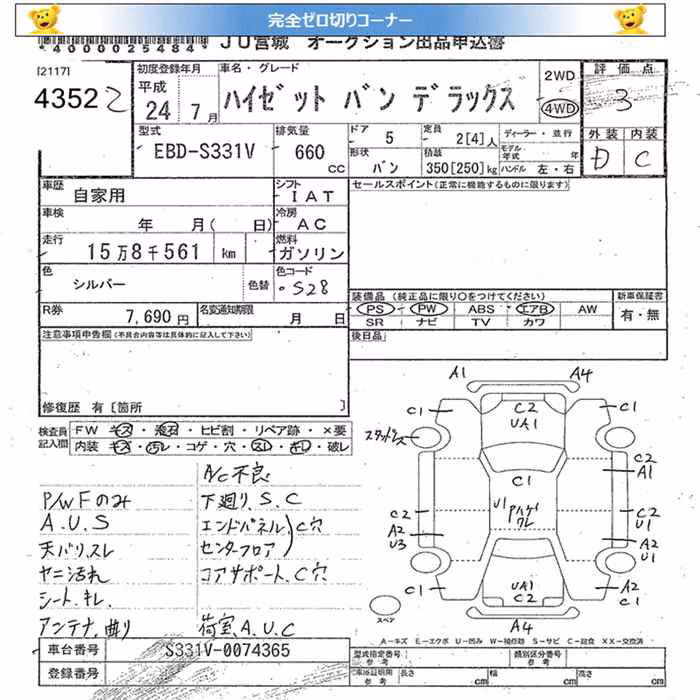 完全ゼロ切りコーナー
*4000025484* JU宮城 オークション出品申込書
[2117]
4352 2
初度登録年月
平成
24年 7月
車名・グレード
ハイゼット バン デラックス
2WD
4WD
評価点
3
外装 内装
D C
型式
EBD-S331V
排気量
660 CC
ドア 5
形状 バン
定員 2[4]人
積載 350[250]kg
ディーラー・並行
モデル年式 年
ハンドル 左・右
車歴 自家用
シフト IAT
車検 年 月( 日)
冷房 AC
走行 15万8千561 km
燃料 ガソリン
色 シルバー 色替
色コード S28
R券 7,690円
名変通知期限 月 日
セールスポイント(正常に機能するものに限ります)
装備品 (純正品に限り○をつけてください)
PS PW ABS エアB AW
SR ナビ TV カワ
新車保証書
有・無
後日品
注意事項申告欄(不具合内容等は具体的に記入して下さい)
修復歴 有 [箇所 ]
検査員記入欄
FW キズ・飛石・ヒビ割・リペア跡・×要
内装 キズ・汚レ・コゲ・穴・スレ・キレ・破レ
A/C不良
P/W Fのみ
下廻り S.C
A.U.S
エンドパネル C穴
天バリ.スレ
センターフロア
ヤニ汚れ
コアサポート.C穴
シート.キレ
アンテナ.曲り
荷室.A.U.C
A1 A4
C1 C2 UA1 C1
スタッドレス
C1
C2 A1
U1 ワレ
C2
C2 U1
A2 U3
A2 U1
C1 UA1 C2 A2 C1
スペア
A4
A-キズ E-エクボ U-凹み W-補修跡 S-サビ C-腐食 XX-交換済
車台番号 S331V-0074365
登録番号
型式指定番号 参考
類別区分番号 参考
車庫証明用 参考 長さ cm 幅 cm 高さ cm